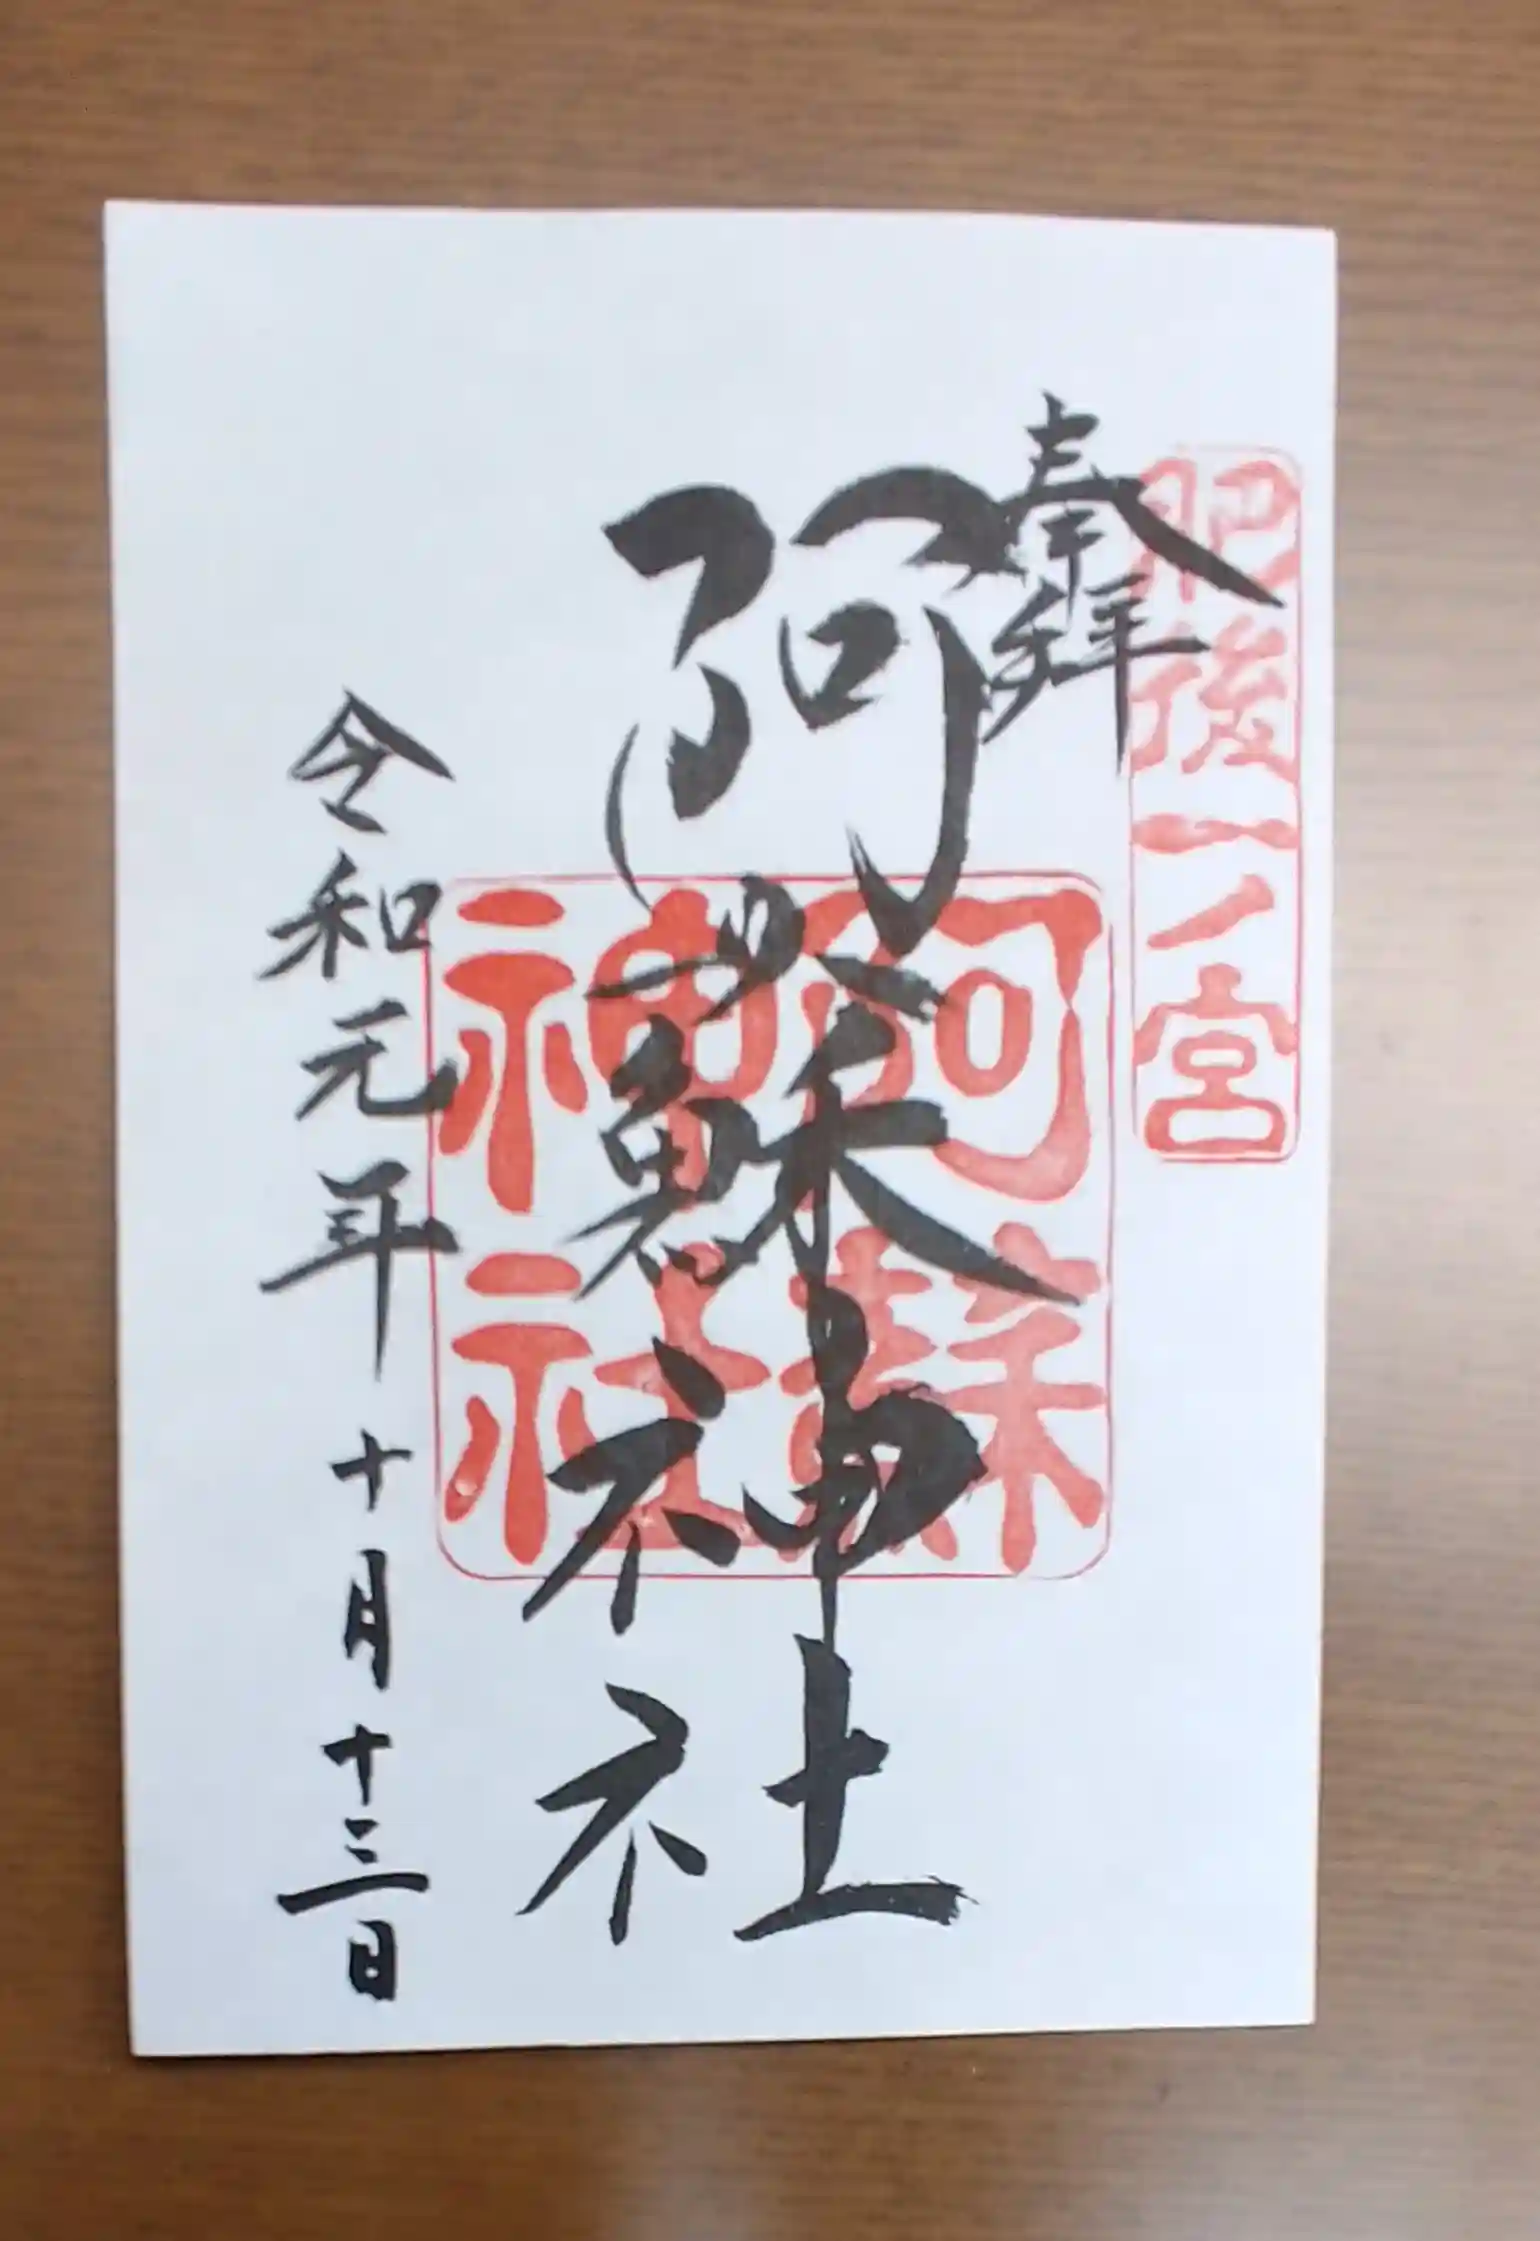 肥後一ノ宮
奉拝
阿蘇神社
阿蘇
神社
令和元年十月十三日